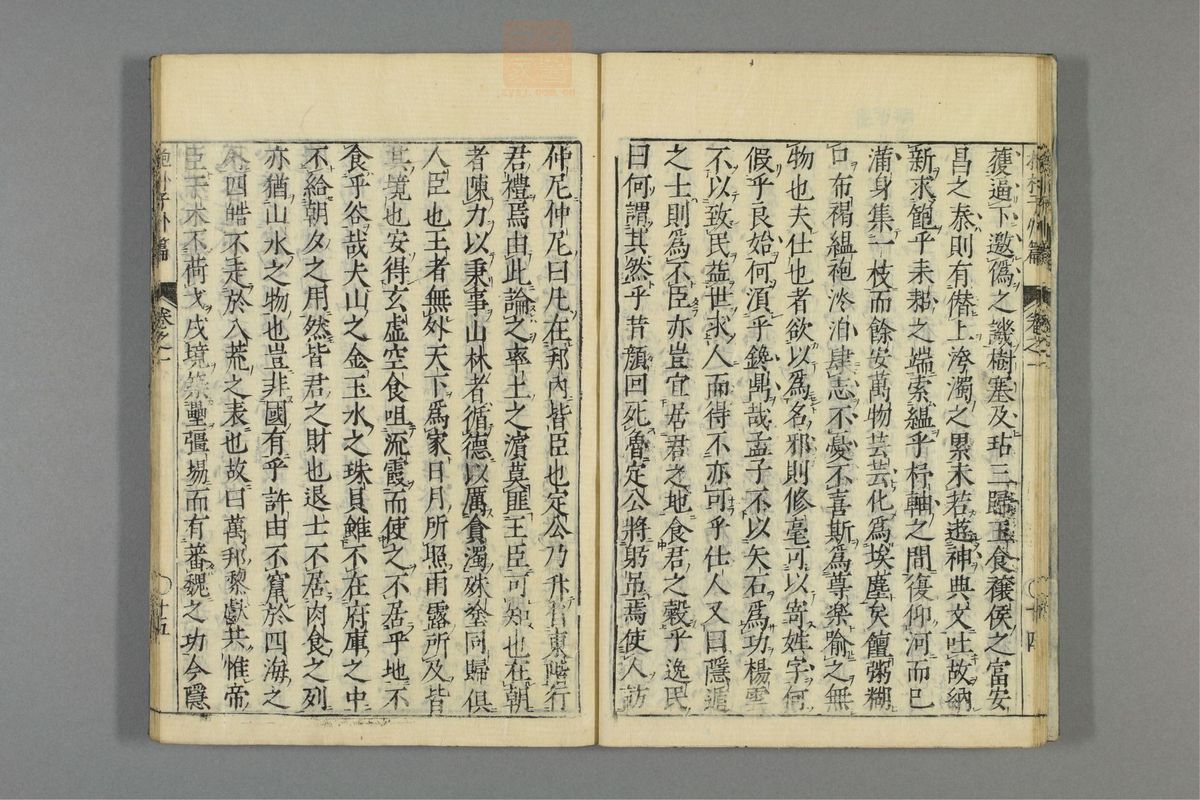 獲過下邀僞之譏樹塞及坫三歸玉食穰侯之富安
昌之泰則有僣上洿濁之累未若遊神典文吐故納
新求飽乎耒耜之端索縕乎杼軸之間復仰河而已
滿身集一枝而餘安萬物芸芸化爲埃塵矣饘粥糊
口布褐縕袍淡泊肆志不憂不喜斯爲尊樂喻之無
物也夫仕也者欲以爲名邪則修毫可以寄姓字何
假乎良始何湏乎鐫鼎哉孟子不以矢石爲功楊雲
不以致民益世求人而得不亦可乎仕人又曰隱遁
之士則爲不臣亦豈宜居君之地食君之穀乎逸民
曰何謂其然乎昔顔回死魯定公將躬吊焉使人訪
仲尼仲尼曰凡在邦內皆臣也定公乃升自東階行
君禮焉由此論之率土之濵莫匪王臣可知也在朝
者陳力以秉事山林者循德以厲貪濁殊塗同歸俱
人臣也王者無外天下爲家日月所照雨露所及皆
其境也安得玄虛空食咀流霞而使之不居乎地不
食乎谷哉夫山之金玉水之珠貝雖不在府庫之中
不給朝夕之用然皆君之財也退士不居肉食之列
亦猶山水之物也豈非國有乎許由不竄於四海之
外四皓不走於八荒之表也故曰萬邦黎獻共惟帝
臣干木不荷戈戍境築壘彊埸而有蕃魏之功今隱
抱朴子外篇
卷之一
十五